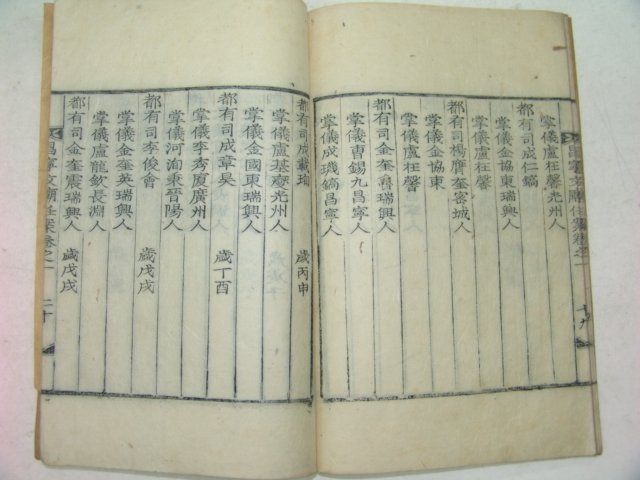 昌寧文廟任案卷之一 十九
掌儀盧枉馨光州人
都有司成仁鎬
掌儀金協東瑞興人
都有司楊膺奎密城人
掌儀金協東
掌儀盧枉馨
都有司金奎魯瑞興人
掌儀曺錫九昌寧人
掌儀成璣鎬昌寧人
都有司成載瑀 歲丙申
掌儀盧基夔光州人
掌儀金國東瑞興人
都有司成章昊 歲丁酉
掌儀李秀廈廣州人
掌儀河洵秉晉陽人
都有司李俊會 歲戊戌
掌儀金奎英瑞興人
掌儀盧龍欽長淵人
都有司金奎震瑞興人 歲戊戌
昌寧文廟任案卷之一 二十